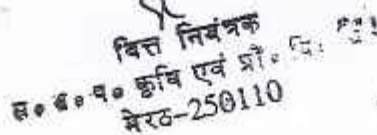 वित्त नियंत्रक
स० ब० प० कृषि एवं प्रौ० वि०
मेरठ-250110